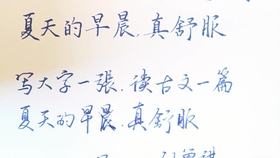 夏天的早晨，真舒服
写大字一張，读古文一篇
夏天的早晨，真舒服
汪曾祺